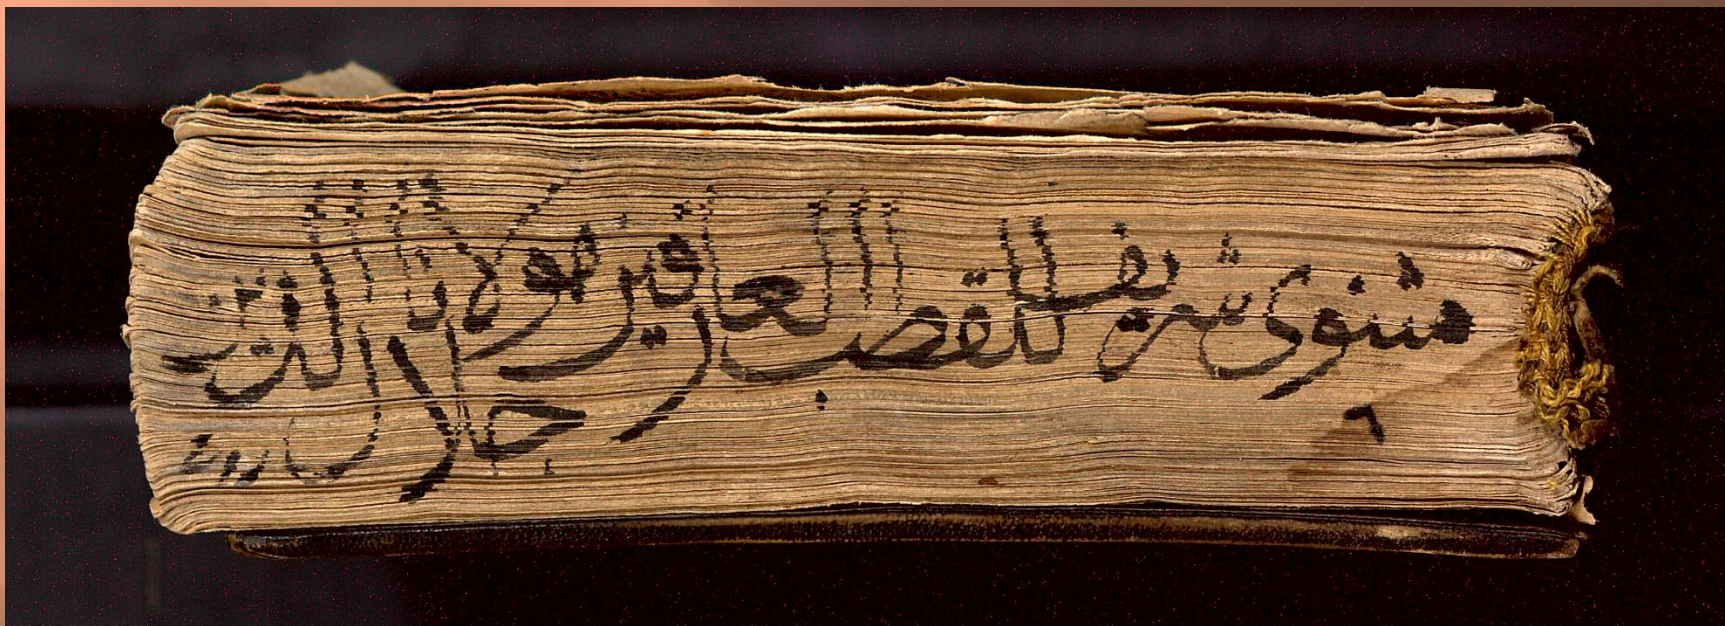 مثنوی شریف للقطب العارفین مولانا جلال الدین